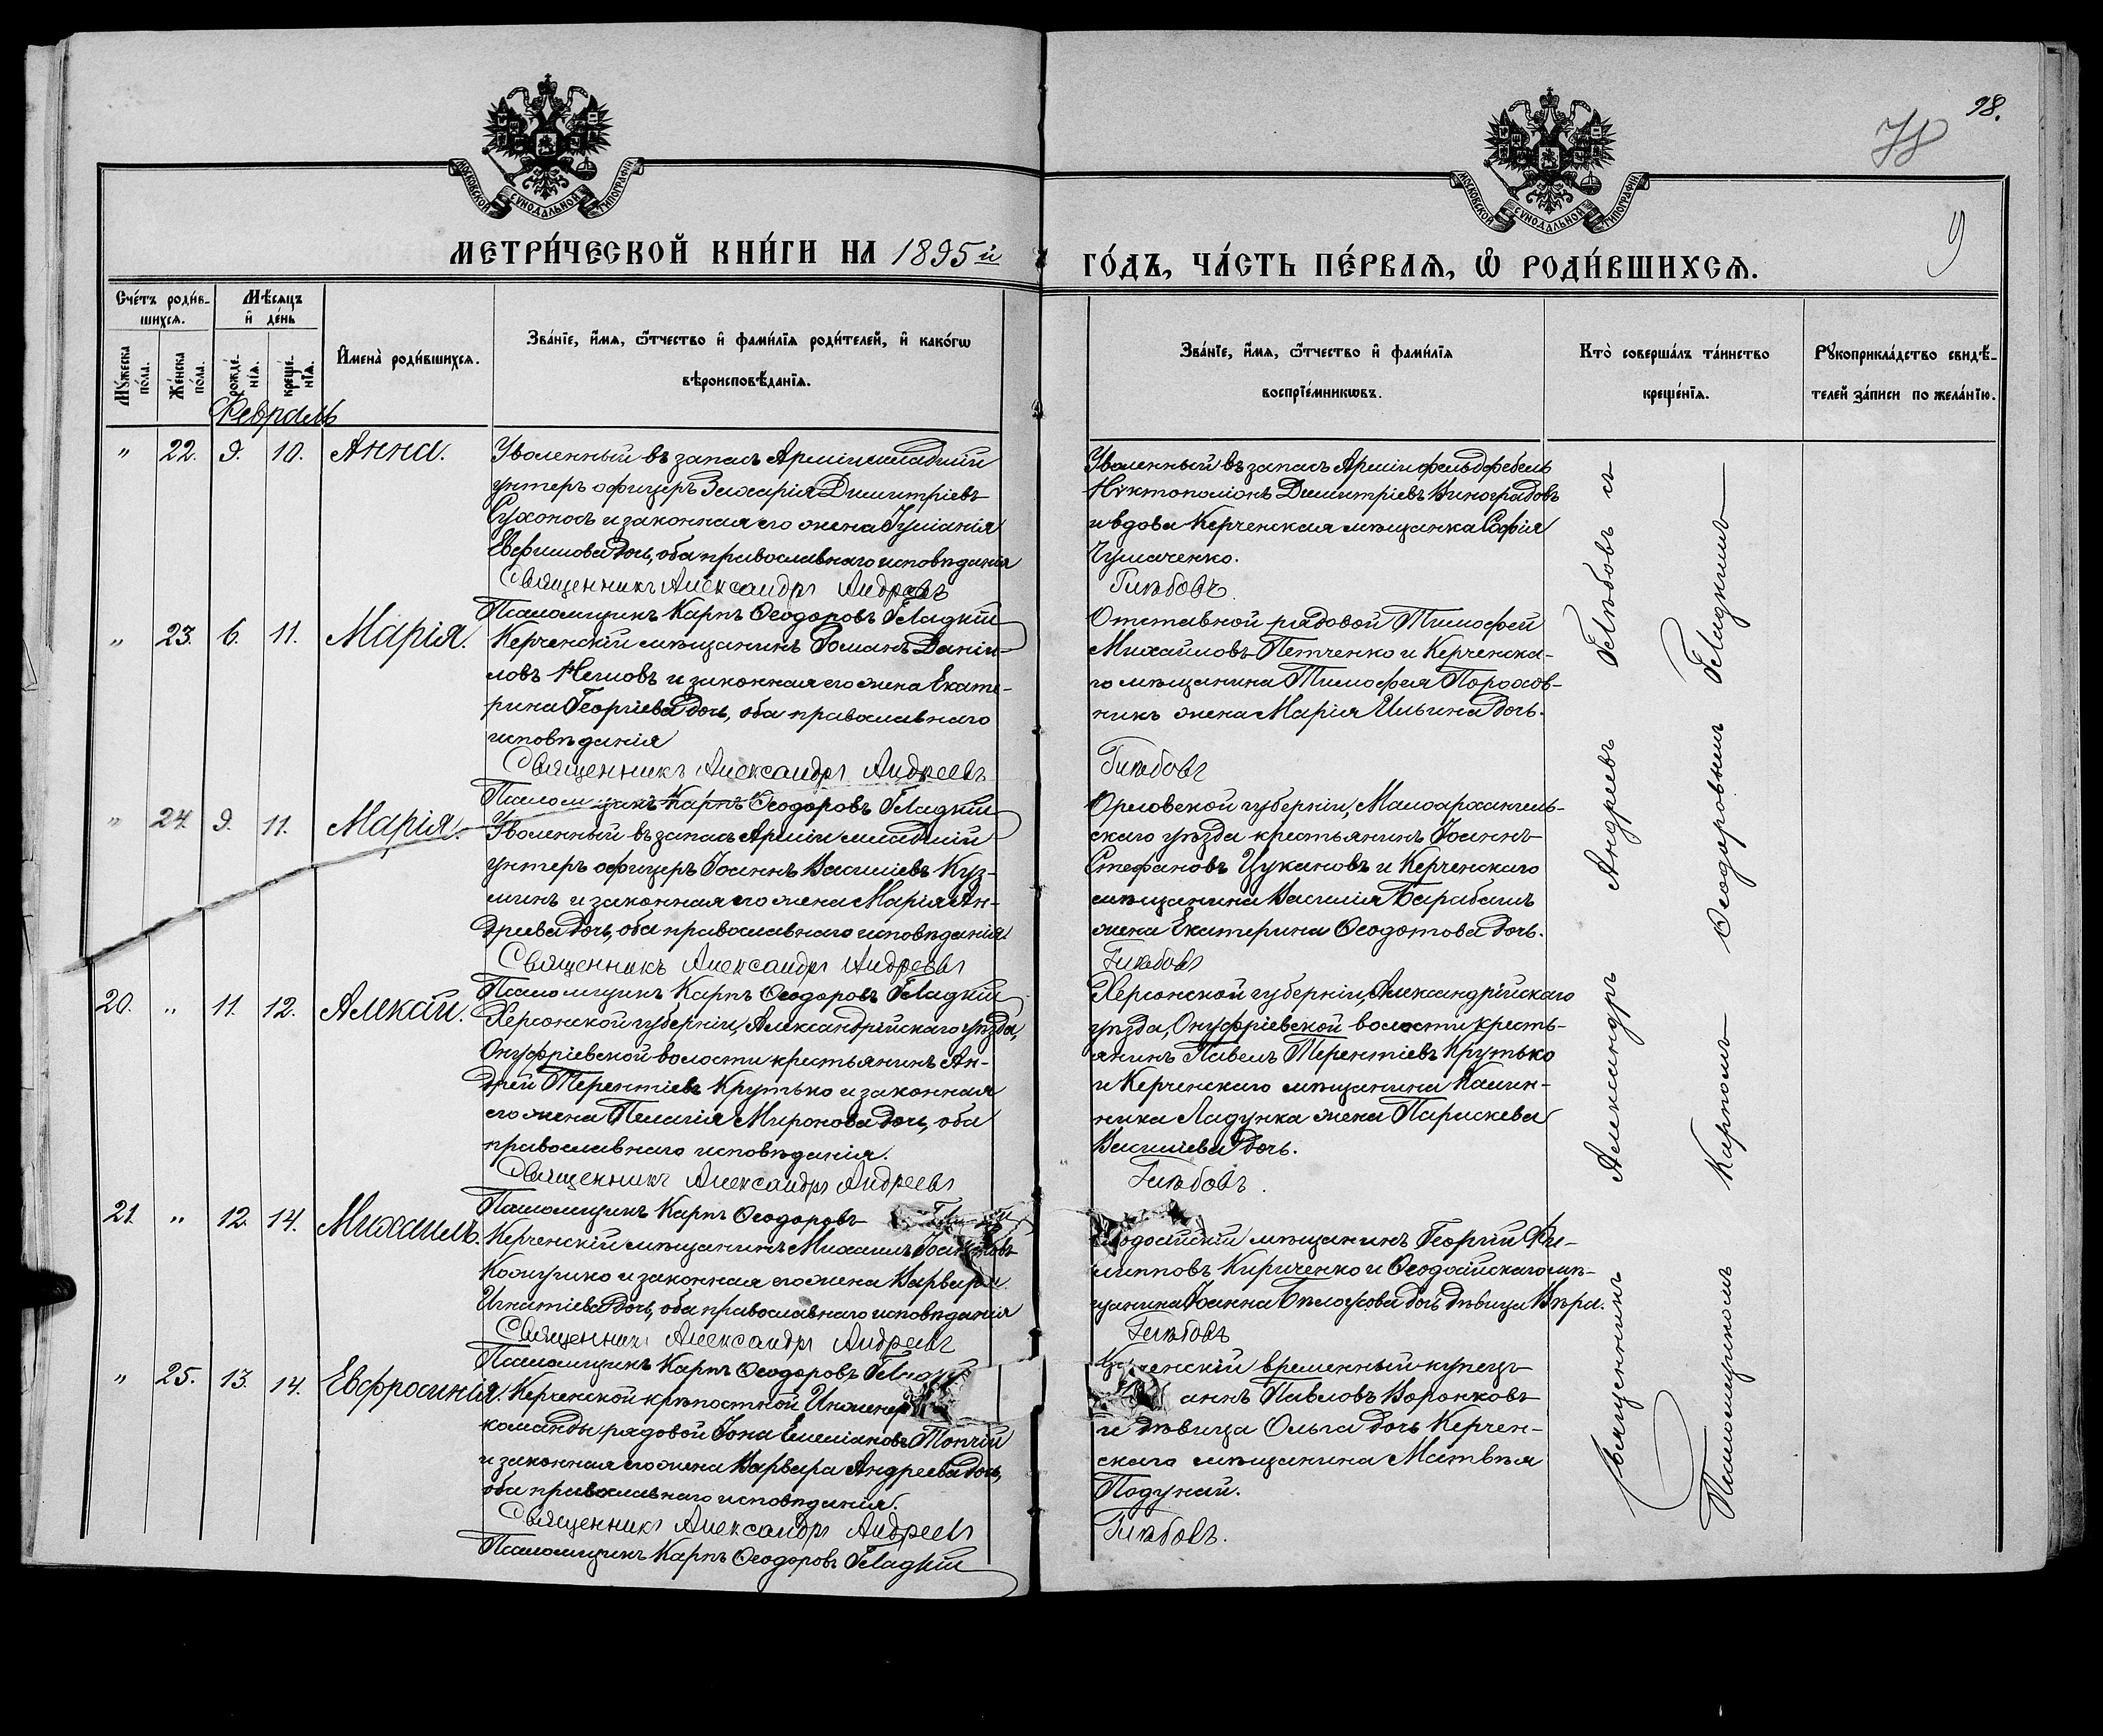 98.
78
9
МОСКОВСКОЙ СѴНОДАЛЬНОЙ ТИПОГРАФІИ
МОСКОВСКОЙ СѴНОДАЛЬНОЙ ТИПОГРАФІИ
МЕТРИ́ЧЕСКОЙ КНИ́ГИ НА 1895й
ГО́ДЪ, ЧА́СТЬ ПЕ́РВАѦ, Ѽ РОДИ́ВШИХСѦ.
Сче́тъ роди́в-
шихсѧ.
Мꙋ́жеска по́ла.
Же́нска по́ла.
Мѣ́сѧцъ
и҆ де́нь
рожде́-
нїѧ.
креще́-
нїѧ.
И҆мена̀ роди́вшихсѧ.
Зва́нїе, и҆́мѧ, ѻ҆́тчество и҆ фами́лїѧ роди́телей, и҆ како́гѡ
вѣроисповѣ́данїѧ.
Зва́нїе, и҆́мѧ, ѻ҆́тчество и҆ фами́лїѧ
воспрїе́мникѡвъ.
Кто̀ соверша́лъ та́инство
креще́нїѧ.
Рꙋкоприкла́дство свидѣ́-
телей за́писи по жела́нїю.
Февраль
" 22. 9. 10. Анна.
Уволенный въ запасъ Арміи младшій
унтеръ офицеръ Захарія Димитріевъ
Сухоносъ и законная его жена Іуліанія
Евфимова дочь, оба православнаго исповѣданія
Священникъ Александръ Андреевъ
Псаломщикъ Карпъ Ѳеодоровъ Гладкій
Уволенный въ запасъ Арміи фельдфебель
Никтополіонъ Димитріевъ Виноградовъ
и вдова Керченская мѣщанка Софія
Чумаченко.
Глѣбовъ.
" 23. 6. 11. Марія.
Керченскій мѣщанинъ Романъ Даніи-
ловъ Немовъ и законная его жена Екате-
рина Георгіева дочь, оба православнаго
исповѣданія
Священникъ Александръ Андреевъ
Псаломщикъ Карпъ Ѳеодоровъ Гладкій
Отставной рядовой Тимофей
Михайловъ Петченко и Керченска-
го мѣщанина Тимофея Порохов-
никъ жена Марія Ильина дочь.
Глѣбовъ
" 24. 9. 11. Марія.
Уволенный въ запасъ Арміи младшій
унтеръ офицеръ Іоаннъ Василіевъ Куз-
минъ и законная его жена Марія Ан-
дреева дочь, оба православнаго исповѣданія.
Священникъ Александръ Андреевъ
Псаломщикъ Карпъ Ѳеодоровъ Гладкій
Орловской губерніи, Малоархангель-
скаго уѣзда крестьянинъ Іоаннъ
Стефановъ Цукановъ и Керченскаго
мѣщанина Василія Барабашъ
жена Екатерина Ѳеодотова дочь.
Глѣбовъ
20. " 11. 12. Алексій.
Херсонской губерніи, Александрійскаго уѣзда,
Онуфріевской волости крестьянинъ Ан-
дрей Терентіевъ Крутько и законная
его жена Пелагія Миронова дочь, оба
православнаго исповѣданія.
Священникъ Александръ Андреевъ
Псаломщикъ Карпъ Ѳеодоровъ
Херсонской губерніи, Александрійскаго
уѣзда, Онуфріевской волости кресть-
янинъ Павелъ Терентіевъ Крутько
и Керченскаго мѣщанина Калин-
ника Ладунка жена Параскева
Василіева дочь.
Глѣбовъ.
21. " 12. 14. Михаилъ.
Керченскій мѣщанинъ Михаилъ Іоанновъ
Кожушко и законная его жена Варвара
Игнатіева дочь, оба православнаго исповѣданія
Священникъ Александръ Андреевъ
Псаломщикъ Карпъ Ѳеодоровъ
Ѳеодосійскій мѣщанинъ Георгій Фи-
липповъ Кириченко и Ѳеодосійскаго мѣ-
щанина Іоанна Бѣлоусова дочь дѣвица Вѣра.
Глѣбовъ
" 25. 13. 14. Евфросинія.
Керченской крѣпостной Инженер
команды рядовой Іона Емеліановъ Топчій
и законная его жена Варвара Андреева дочь,
оба православнаго исповѣданія.
Священникъ Александръ Андреевъ
Псаломщикъ Карпъ Ѳеодоровъ Гладкій
Керченскій временный купецъ
аннъ Павловъ Воронковъ
и дѣвица Ольга дочь Керчен-
скаго мѣщанина Матвѣя
Подунай.
Глѣбовъ.
Священникъ Александръ Андреевъ Глѣбовъ съ
Псаломщикомъ Карпомъ Ѳеодоровымъ Гладкимъ